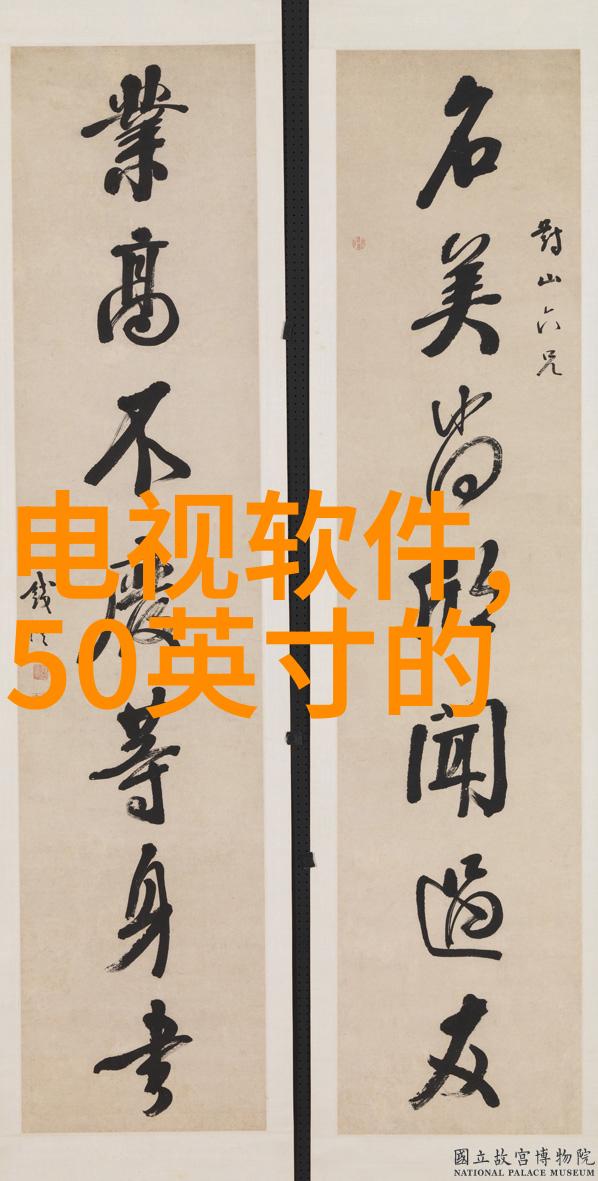 對山六兄
名美尚欣聞過友
業高不廢等身書
錢
电视软件,
50英寸的
國立故宮博物院
NATIONAL PALACE MUSEUM